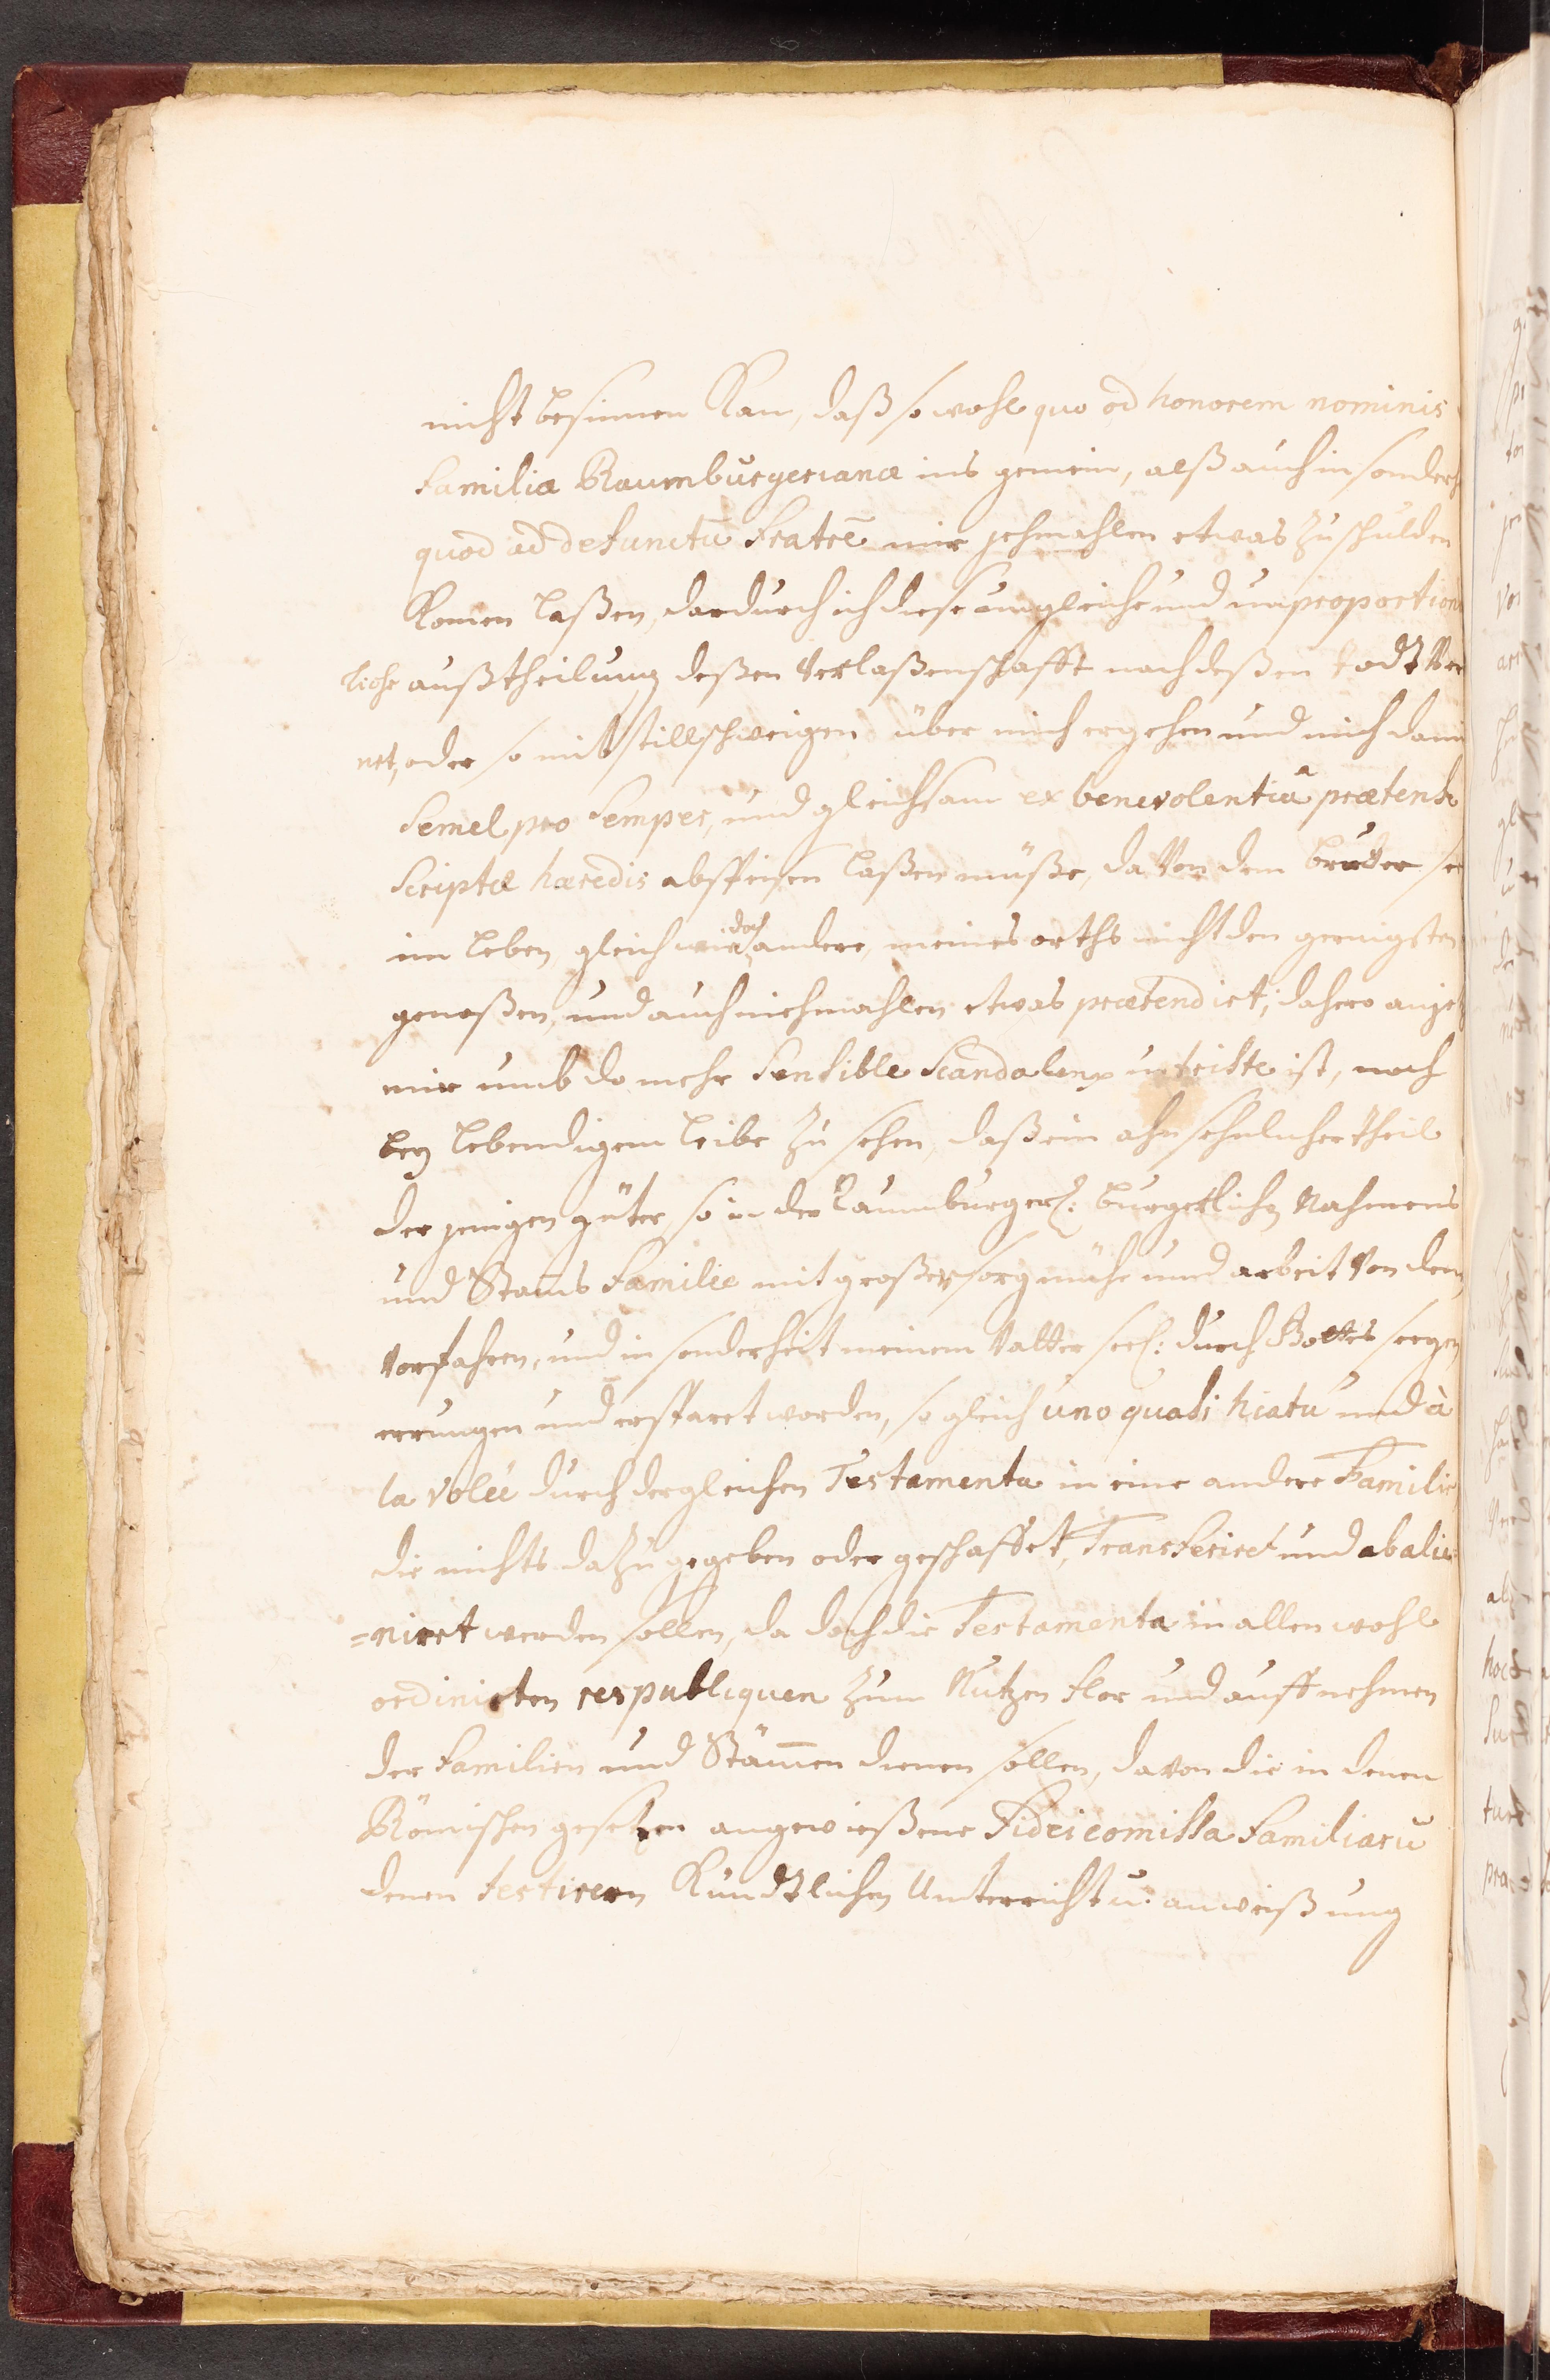 nicht besinnen Kan, daß so wohl quo ad honorem nominis
Familiæ Raumburgerianæ ins gemein, alß auch in sonderh
quod ad defunctū Fratrē mir jehmahlen etwas zu schulden
Komen laßen, dardurch ich diese ungleiche und unproportion
liche außtheilung deßen Verlaßenschafft nach deßen todt Ver
net, oder so mit stillschweigen über mich ergehen und mich dami
Semel pro Semper, und gleichsam ex benevolentiâ prætens
Scriptæ hæredis abspeisen laßen müße, da Von dem bruder se
im leben, gleich wie doch andere, meines orths nicht den geringsten
genoßen, und auch niehmahlen etwas prætendirt; dahero anjet
mir umb do mehr Sensible Scandaleux u: triste ist, noch
bey lebendigem leibe zu sehen, daß ein ahnsehnlicher theil
der jenigen güter, so in der Raumburger: burgerlichen Nahmens
und Stams Familie mit großer sorg mühe und arbeit Von den
Vorfahren, und in sonderheit meinem Vatter seel: durch Gottes seegen
errungen und ersparet worden, so gleich uno quasi hiatu und à
la Voleé durch dergleichen Testamenta in eine andere Familie
die nichts dazu gegeben oder geschaffet, Transferiret und abalie
=niret werden sollen, da doch die Testamenta in allen wohl
ordinirten respubliquen zum Nutzen flor und auffnehmen
der Familien und Stämen dienen sollen, davon die in denen
Römischen gesetzen angewießene Fideicomissa Familiarū
denen testirern Kundtlichen Unterricht u: anweißung